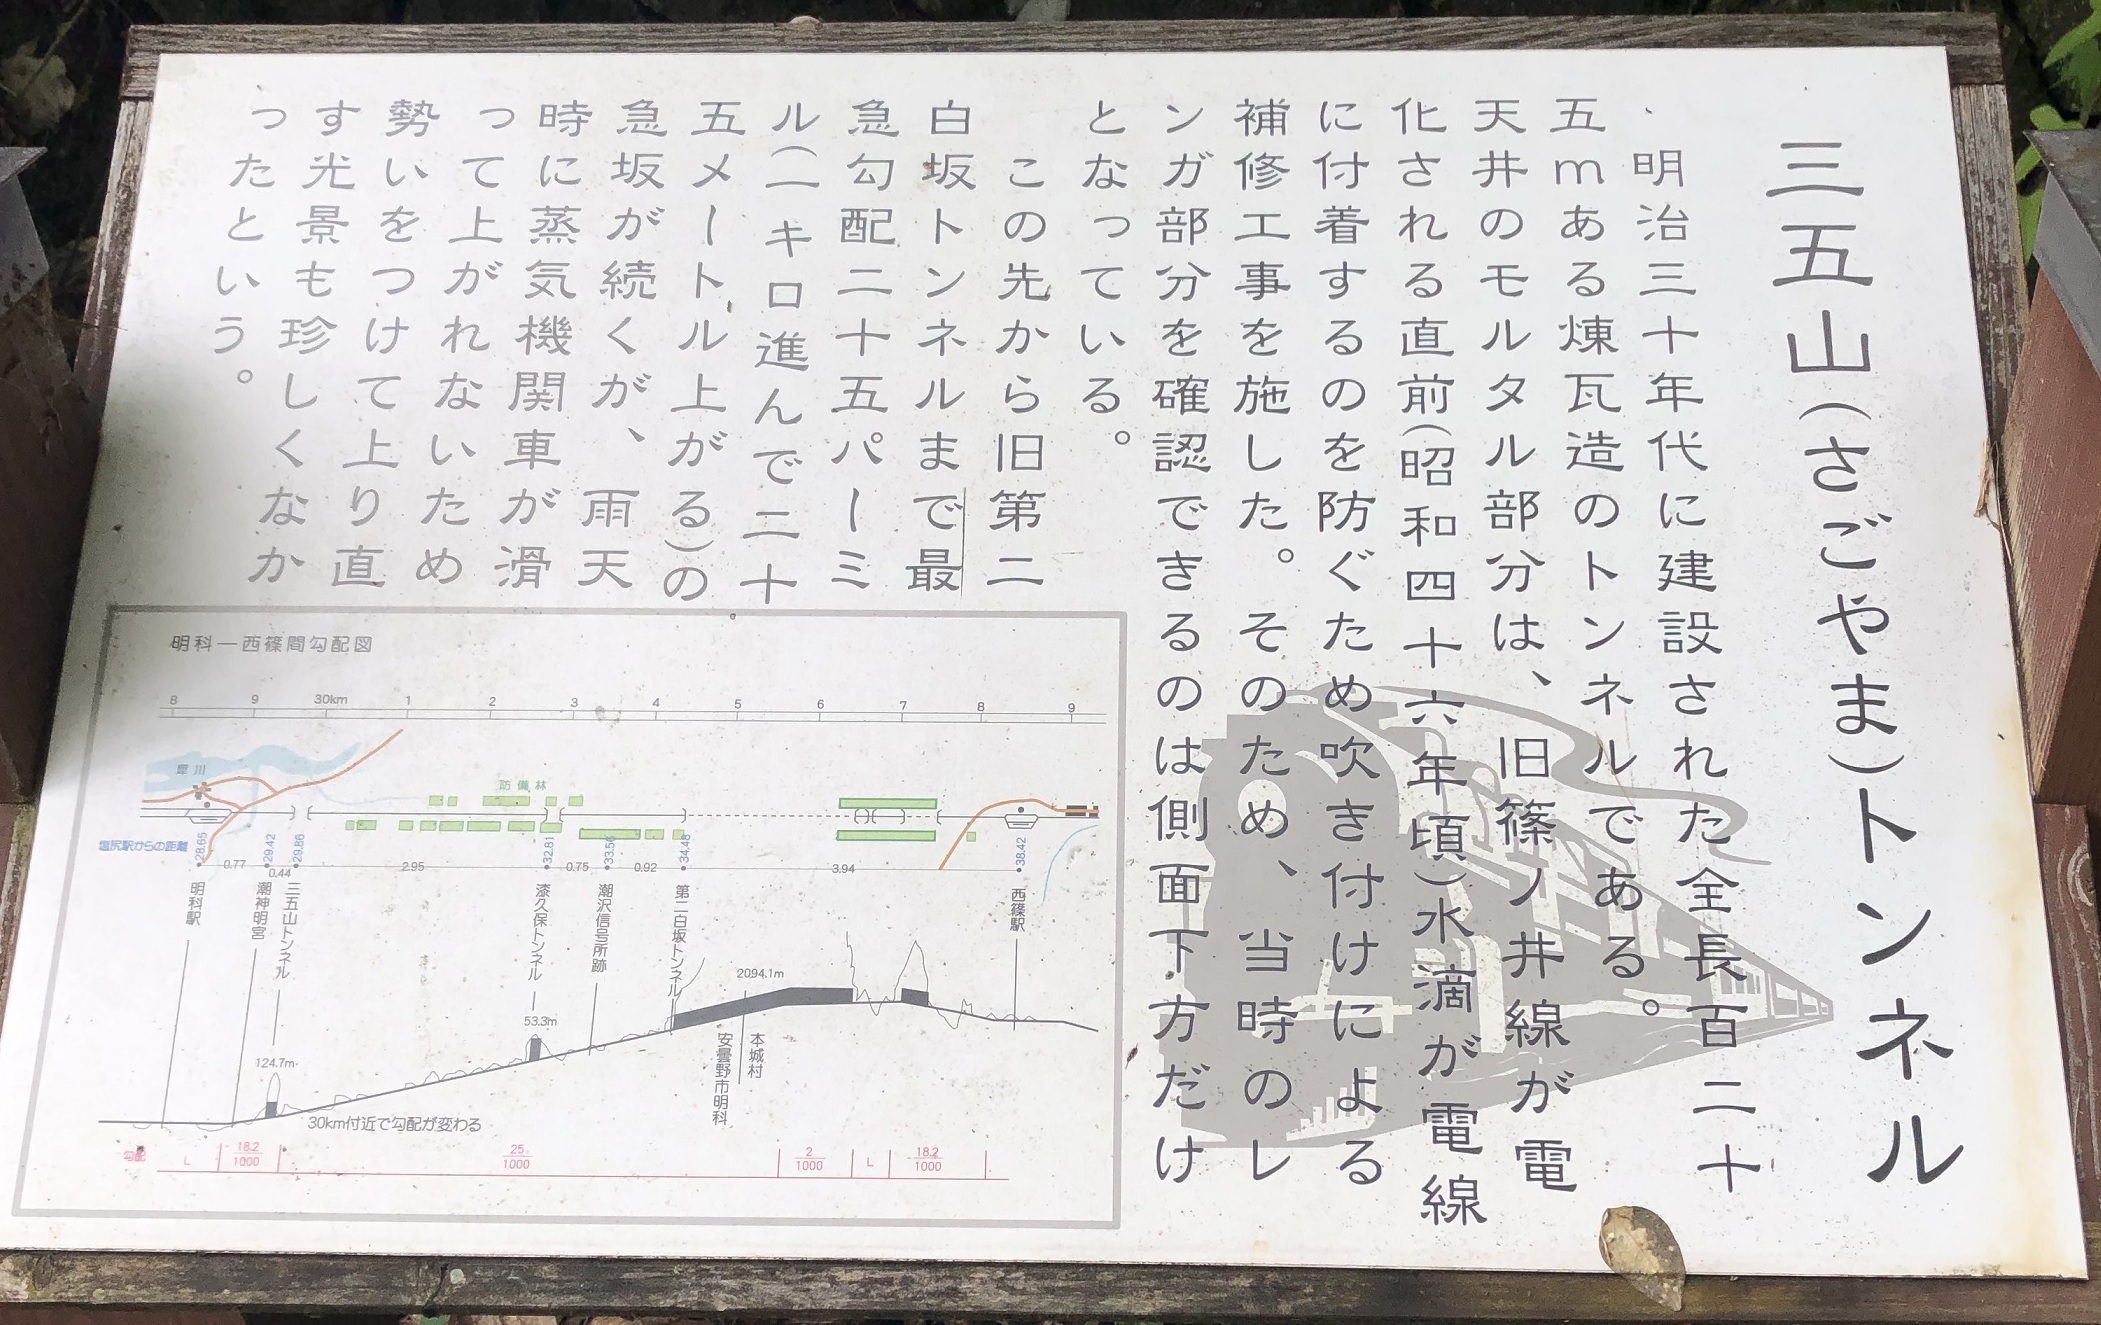 三五山(さごやま)トンネル
明治三十年代に建設された全長百二十
五mある煉瓦造のトンネルである。
天井のモルタル部分は、旧篠ノ井線が電
化される直前(昭和四十六年頃)水滴が電線
に付着するのを防ぐため吹き付けによる
補修工事を施した。そのため、当時のレ
ンガ部分を確認できるのは側面下方だけ
となっている。
この先から旧第二
白坂トンネルまで最
急勾配二十五パーミ
ル(一キロ進んで二十
五メートル上がる)の
急坂が続くが、雨天
時に蒸気機関車が滑
って上がれないため
勢いをつけて上り直
す光景も珍しくなか
ったという。
明科—西篠間勾配図
8 9 30km 1 2 3 4 5 6 7 8 9
犀川
防備林
塩尻駅からの距離
28.65 29.42 29.86 32.81 33.56 34.48 38.42
0.77 0.44 2.95 0.75 0.92 3.94
明科駅
潮神明宮
三五山トンネル
漆久保トンネル
潮沢信号所跡
第二白坂トンネル
西篠駅
2094.1m
53.3m
124.7m
本城村
安曇野市明科
30km付近で勾配が変わる
勾配 L 18.2/1000 25/1000 2/1000 L 18.2/1000